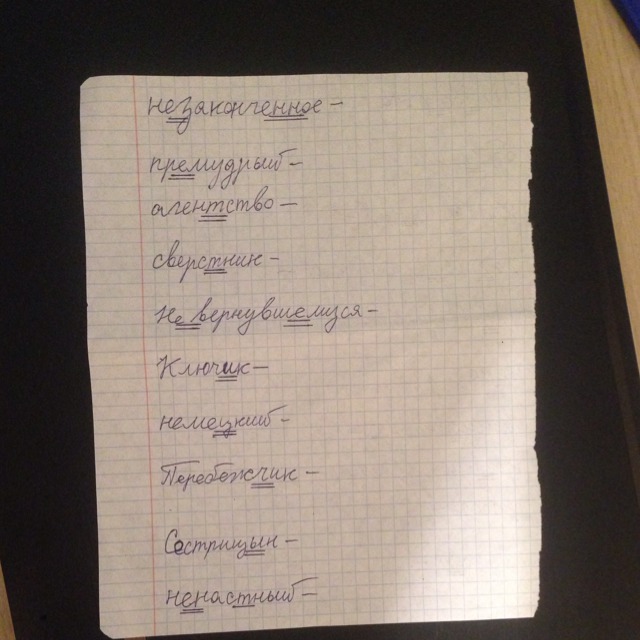 незаконченное –
премудрый –
агентство –
сверстник –
Не вернувшемуся –
Ключик –
немецкий –
Перебежчик –
Сестрицын –
ненастный –